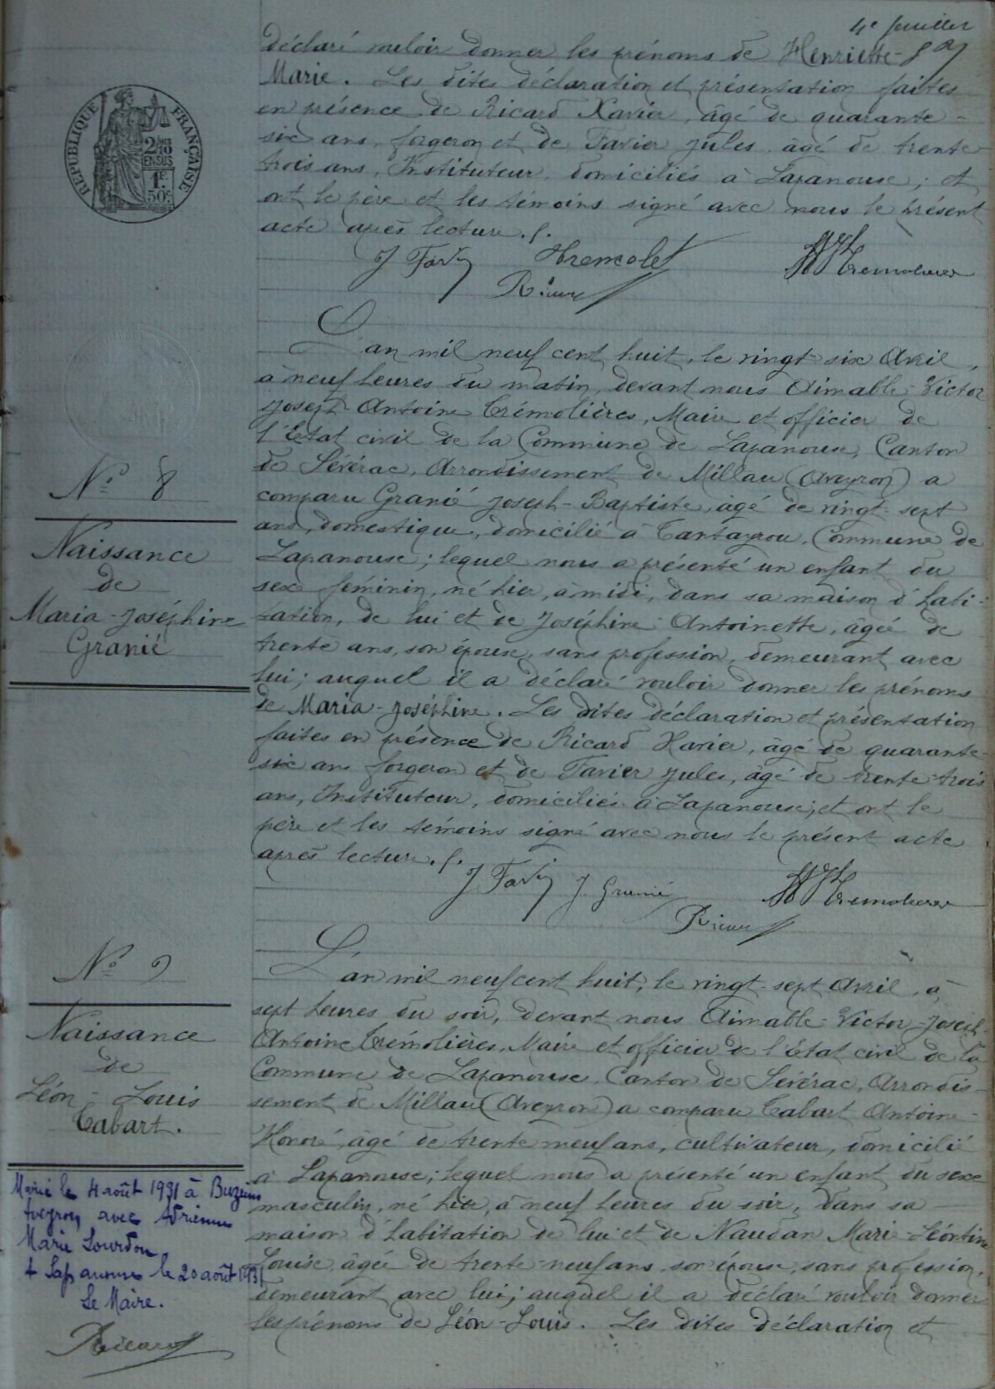 4e feuillet
déclaré vouloir donner les prénoms de Henriette-
Marie. Les dites déclaration et présentation faites
en présence de Ricard Xavier, âgé de quarante-
six ans, forgeron et de Favier Jules, âgé de trente-
trois ans, Instituteur, domiciliés à Lapanouse; et
ont le père et les témoins signé avec nous le présent
acte après lecture.
RÉPUBLIQUE FRANÇAISE
2/10 EN SUS
1F 50c
L'an mil neuf cent huit, le vingt-six Avril,
à neuf heures du matin, devant nous Aimable-Victor
Joseph-Antoine Trémolières, Maire et officier de
l'Etat civil de la Commune de Lapanouse, Canton
de Sévérac, Arrondissement de Millau (Aveyron) a
comparu Granié Joseph-Baptiste, âgé de vingt-sept
ans, domestique, domicilié à Tantayrou, Commune de
Lapanouse; lequel nous a présenté un enfant du
sexe féminin, né hier, à midi, dans sa maison d'habi-
tation, de lui et de Joséphine Antoinette, âgée de
trente ans, son épouse, sans profession, demeurant avec
lui; auquel il a déclaré vouloir donner les prénoms
de Maria-Joséphine. Les dites déclaration et présentation
faites en présence de Ricard Xavier, âgé de quarante-
six ans forgeron et de Favier Jules, âgé de trente-trois
ans, Instituteur, domiciliés à Lapanouse; et ont le
père et les témoins signé avec nous le présent acte
après lecture.
J. Granié
Nº 8
Naissance
de
Maria-Joséphine
Granié
L'an mil neuf cent huit, le vingt-sept Avril, à
sept heures du soir, devant nous Aimable-Victor-Joseph-
Antoine Trémolières, Maire et officier de l'état civil de la
Commune de Lapanouse, Canton de Sévérac, Arrondis-
sement de Millau (Aveyron) a comparu Cabart Antoine-
Honoré, âgé de trente neuf ans, cultivateur, domicilié
à Lapanouse; lequel nous a présenté un enfant du sexe
masculin, né hier, à neuf heures du soir, dans sa
maison d'habitation de lui et de Naudan Marie-Léontine
Louise, âgée de trente-neuf ans, son épouse, sans profession,
demeurant avec lui; auquel il a déclaré vouloir donner
les prénoms de Léon-Louis. Les dites déclaration et
Nº 9
Naissance
de
Léon-Louis
Cabart.
Marié le 4 août 1931 à Buzeins
Aveyron avec Adrienne
Marie Lourdou
Lapanouse le 20 août 1931
Le Maire.